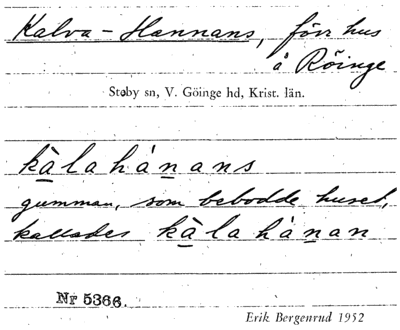 Kalva-Hannans, förr hus
å Röinge
Stoby sn, V. Göinge hd, Krist. län.
kàlahánans
gumman, som bebodde huset,
kallades kàlahánan
Nr 5366.
Erik Bergenrud 1952